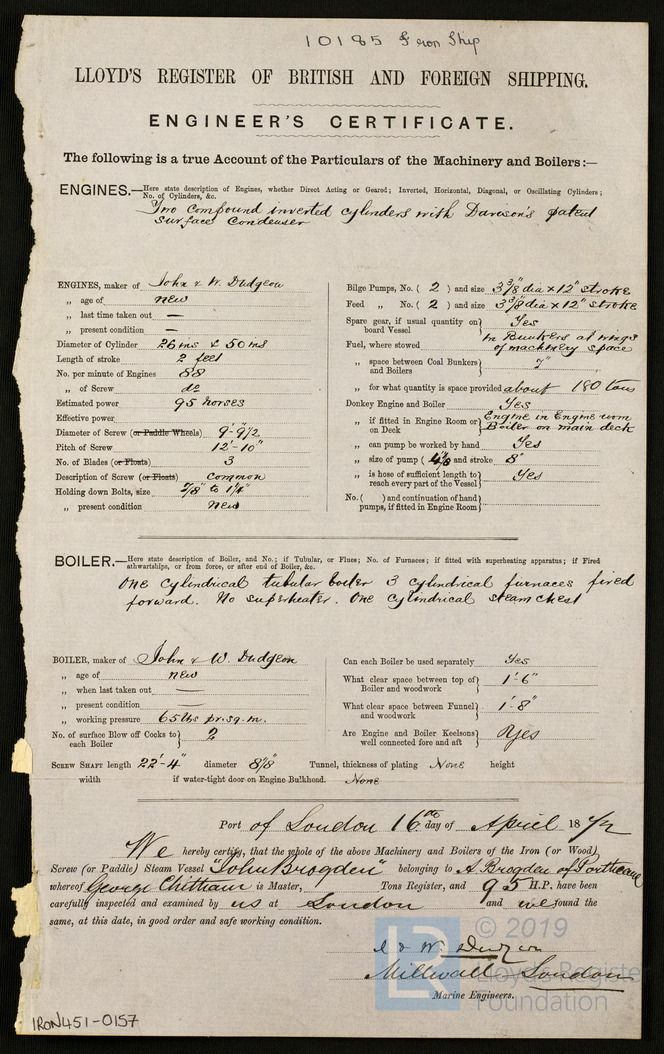 10185 Iron Ship
LLOYD'S REGISTER OF BRITISH AND FOREIGN SHIPPING.
ENGINEER'S CERTIFICATE.
The following is a true Account of the Particulars of the Machinery and Boilers:—
ENGINES.—Here state description of Engines, whether Direct Acting or Geared; Inverted, Horizontal, Diagonal, or Oscillating Cylinders; No. of Cylinders, &c.
Two compound inverted cylinders with Davison's patent
surface condenser
ENGINES, maker of John & W. Dudgeon
„ age of new
„ last time taken out —
„ present condition —
Diameter of Cylinder 26 ins & 50 ins
Length of stroke 2 feet
No. per minute of Engines 88
„ of Screw do
Estimated power 95 horses
Effective power
Diameter of Screw (or Paddle Wheels) 9'-9½
Pitch of Screw 12'-10"
No. of Blades (or Floats) 3
Description of Screw (or Floats) common
Holding down Bolts, size 7/8" to 1¼"
„ present condition new
Bilge Pumps, No. ( 2 ) and size 3⅜ dia x 12" stroke
Feed „ No. ( 2 ) and size 3⅜ dia x 12" stroke
Spare gear, if usual quantity on board Vessel Yes
Fuel, where stowed in Bunkers at wings of machinery space
„ space between Coal Bunkers and Boilers 7"
„ for what quantity is space provided about 180 tons
Donkey Engine and Boiler Yes
„ if fitted in Engine Room or on Deck Engine in Engine room Boiler on main deck
„ can pump be worked by hand Yes
„ size of pump ( ) and stroke 8"
„ is hose of sufficient length to reach every part of the Vessel Yes
No. ( ) and continuation of hand pumps, if fitted in Engine Room
BOILER.—Here state description of Boiler, and No.; if Tubular, or Flues; No. of Furnaces; if fitted with superheating apparatus; if Fired athwartships, or from force, or after end of Boiler, &c.
One cylindrical tubular boiler 3 cylindrical furnaces fired
forward. No superheater. One cylindrical steam chest
BOILER, maker of John & W. Dudgeon
„ age of new
„ when last taken out —
„ present condition —
„ working pressure 65 lbs pr. sq. in.
No. of surface Blow off Cocks to each Boiler 2
Can each Boiler be used separately Yes
What clear space between top of Boiler and woodwork 1'-6"
What clear space between Funnel and woodwork 1'-8"
Are Engine and Boiler Keelsons well connected fore and aft Yes
SCREW SHAFT length 22'-4" diameter 8⅜" Tunnel, thickness of plating None height
width if water-tight door on Engine Bulkhead. None
Port of London 16th day of April 1872
We hereby certify, that the whole of the above Machinery and Boilers of the Iron (or Wood)
Screw (or Paddle) Steam Vessel "John Brogden" belonging to A. Brogden of Porthcawl
whereof George Chitham is Master, Tons Register, and 95 H.P. have been
carefully inspected and examined by us at London and we found the
same, at this date, in good order and safe working condition.
J & W. Dudgeon
Millwall London
Marine Engineers.
© 2019
Lloyd's Register
Foundation
LR
IRON451-0157